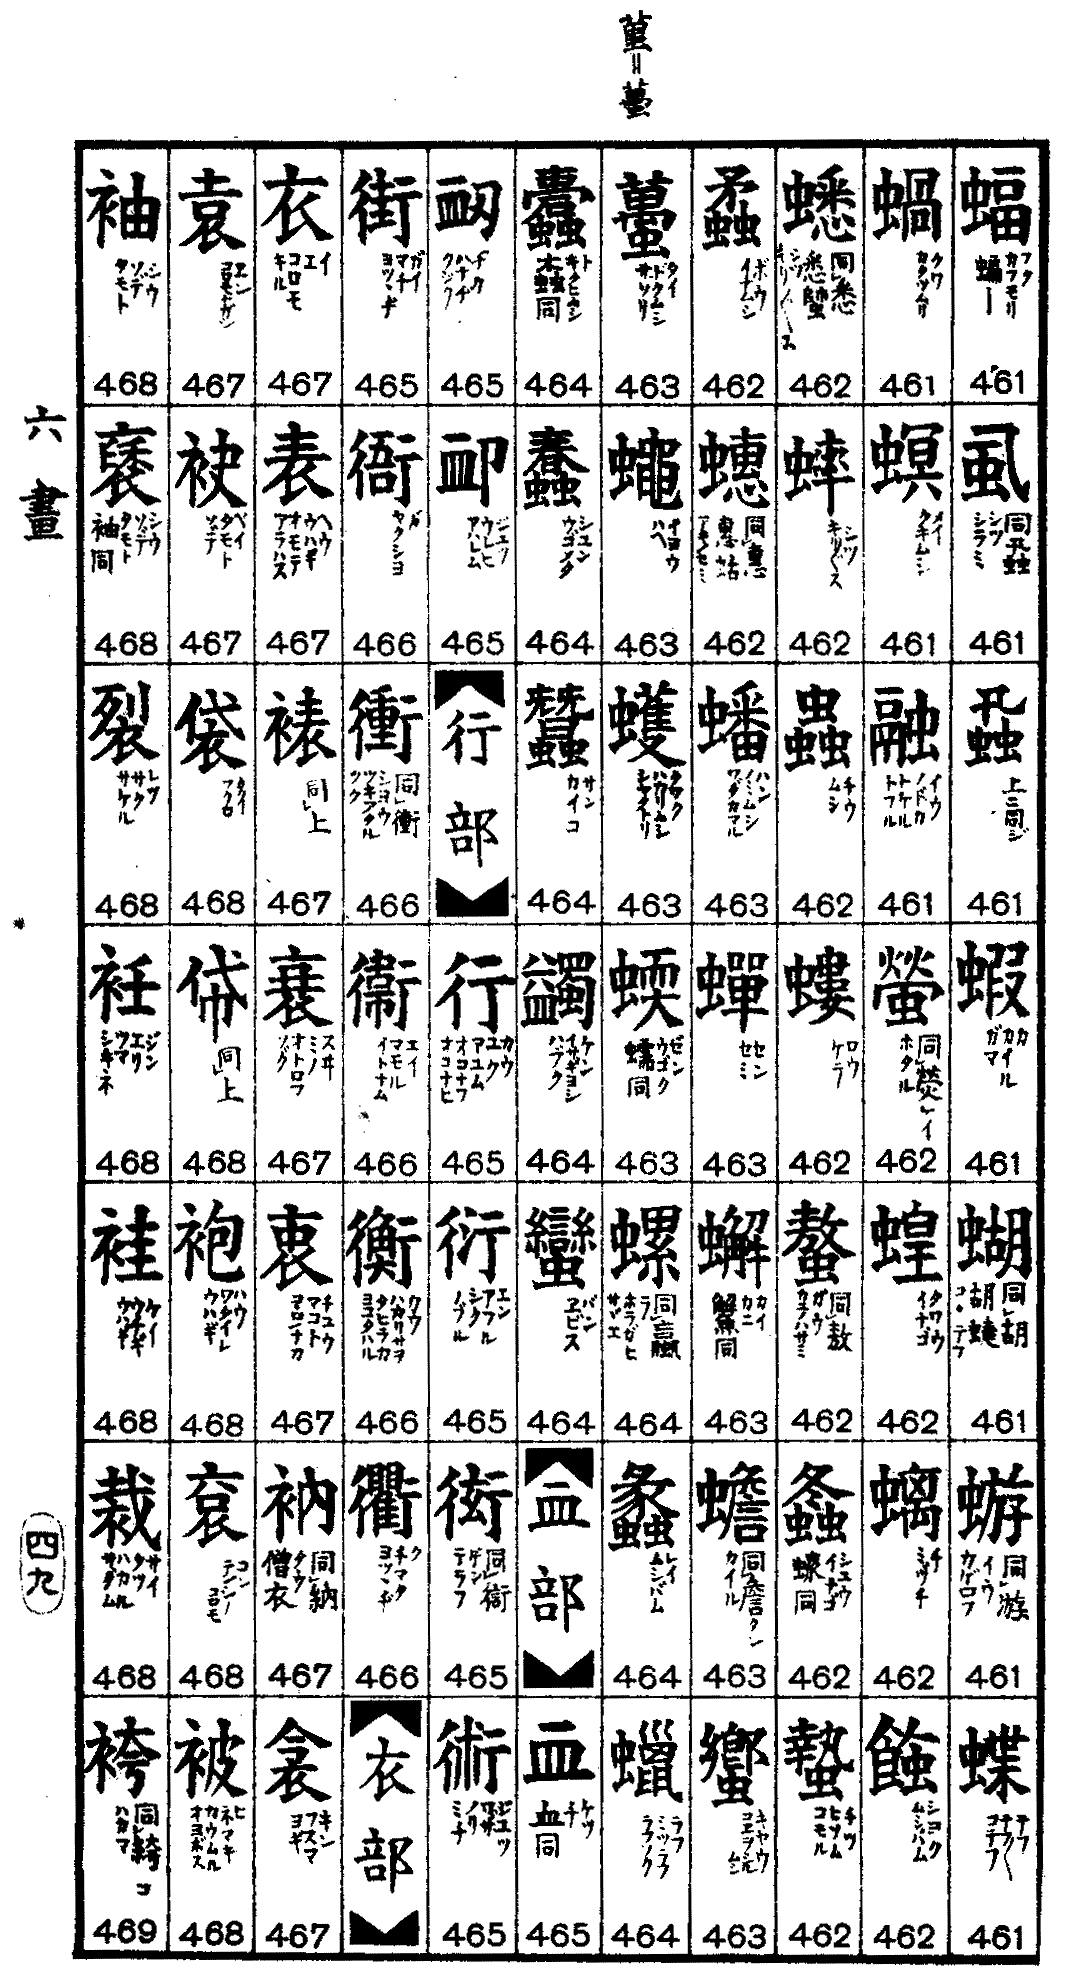 蝠 フク カフモリ 蝙ー 461
虱 同虱 シツ シラミ 461
上ニ同ジ 461
蝦 カ カイル ガマ 461
蝴 同胡 胡蝶 コ・テフ 461
蝣 同游 イウ カゲロフ 461
蝶 テフ コテフ 461
蝸 クワ カタツムリ 461
螟 メイ クキムシ 461
融 イウ ノドカ トケル トフル 461
螢 同熒 ケイ ホタル 462
蝗 クワウ イナゴ 462
螭 チ ミヅチ 462
蝕 シヨク ムシバム 462
蟋 同悉 シツ 462
蟀 シツ キリ〲ス 462
蟲 チウ ムシ 462
螻 ロウ ケラ 462
螯 同敖 ガウ カニノハサミ 462
螽 シユウ イナゴ 同 462
蟄 チツ ヒソム コモル 462
蟊 ボウ イナムシ 462
蟪 同惠 蟪蛄 462
蟠 ハン ノミムシ ワダカマル 463
蟬 セン セミ 463
蟹 カイ カニ 同 463
蟾 同詹 タン カイル 463
蠁 キヤウ 463
蠆 タイ ドクムシ サソリ 463
蠅 イヨウ ハヘ 463
蠖 クワク 463
蝡 ゼン ウゴク 蠕同 463
螺 同 ラ ホラガヒ サヾエ 464
蠡 レイ ムシバム 464
蠟 ラフ ミツラフ ラフソク 464
蠹 ト キクヒムシ 同 464
蠢 シユン ウゴメク 464
蠶 サン カイコ 464
蠲 ケン イサギヨシ ハブク 464
蠻 バン ヱビス 464
血部
血 ケツ チ 血同 465
衂 ヂク ハナヂ クジク 465
卹 ジユツ ウレヒ アハレム 465
行部
行 カウ ユク アユム オコナフ オコナヒ 465
衍 エン アフル シク ノブル 465
衒 同衒 ゲン テラフ 465
術 ジユツ ワザ ノリ ミチ 465
街 ガイ マチ ヨツヽヂ 465
衙 ガ ヤクシヨ 466
衝 同衝 シヨウ ツキアタル ツク 466
衞 エイ マモル イトナム 466
衡 カウ ハカリサヲ タヒラカ ヨコタハル 466
衢 ク チマタ ヨツヽヂ 466
衣部
衣 イ エ コロモ キル 467
表 ヘウ ウハギ オモテ アラハス 467
裱 同上 467
衰 スヰ ミノ オトロフ ソグ 467
衷 チユウ マコト マロンナカ 467
衲 同納 ダウ 僧衣 467
衾 キン フスマ ヨギ 467
袁 エン コロモナガシ 467
袂 ベイ タモト ソデ 467
袋 タイ フクロ 468
帒 同上 468
袍 ハウ ワタイレ ウハギ 468
袞 コン テンシノコロモ 468
被 ヒ ネマキ カウムル オヨボス 468
袖 シウ ソデ タモト 468
褎 シウ ソデ タモト 袖同 468
裂 レツ サク サケル 468
衽 ジン エリ ツマ シキネ 468
袿 ケイ ウチギ ウハギ 468
裁 サイ タツ ハカル サダム 468
袴 同綺 コ ハカマ 469
六畫
四九